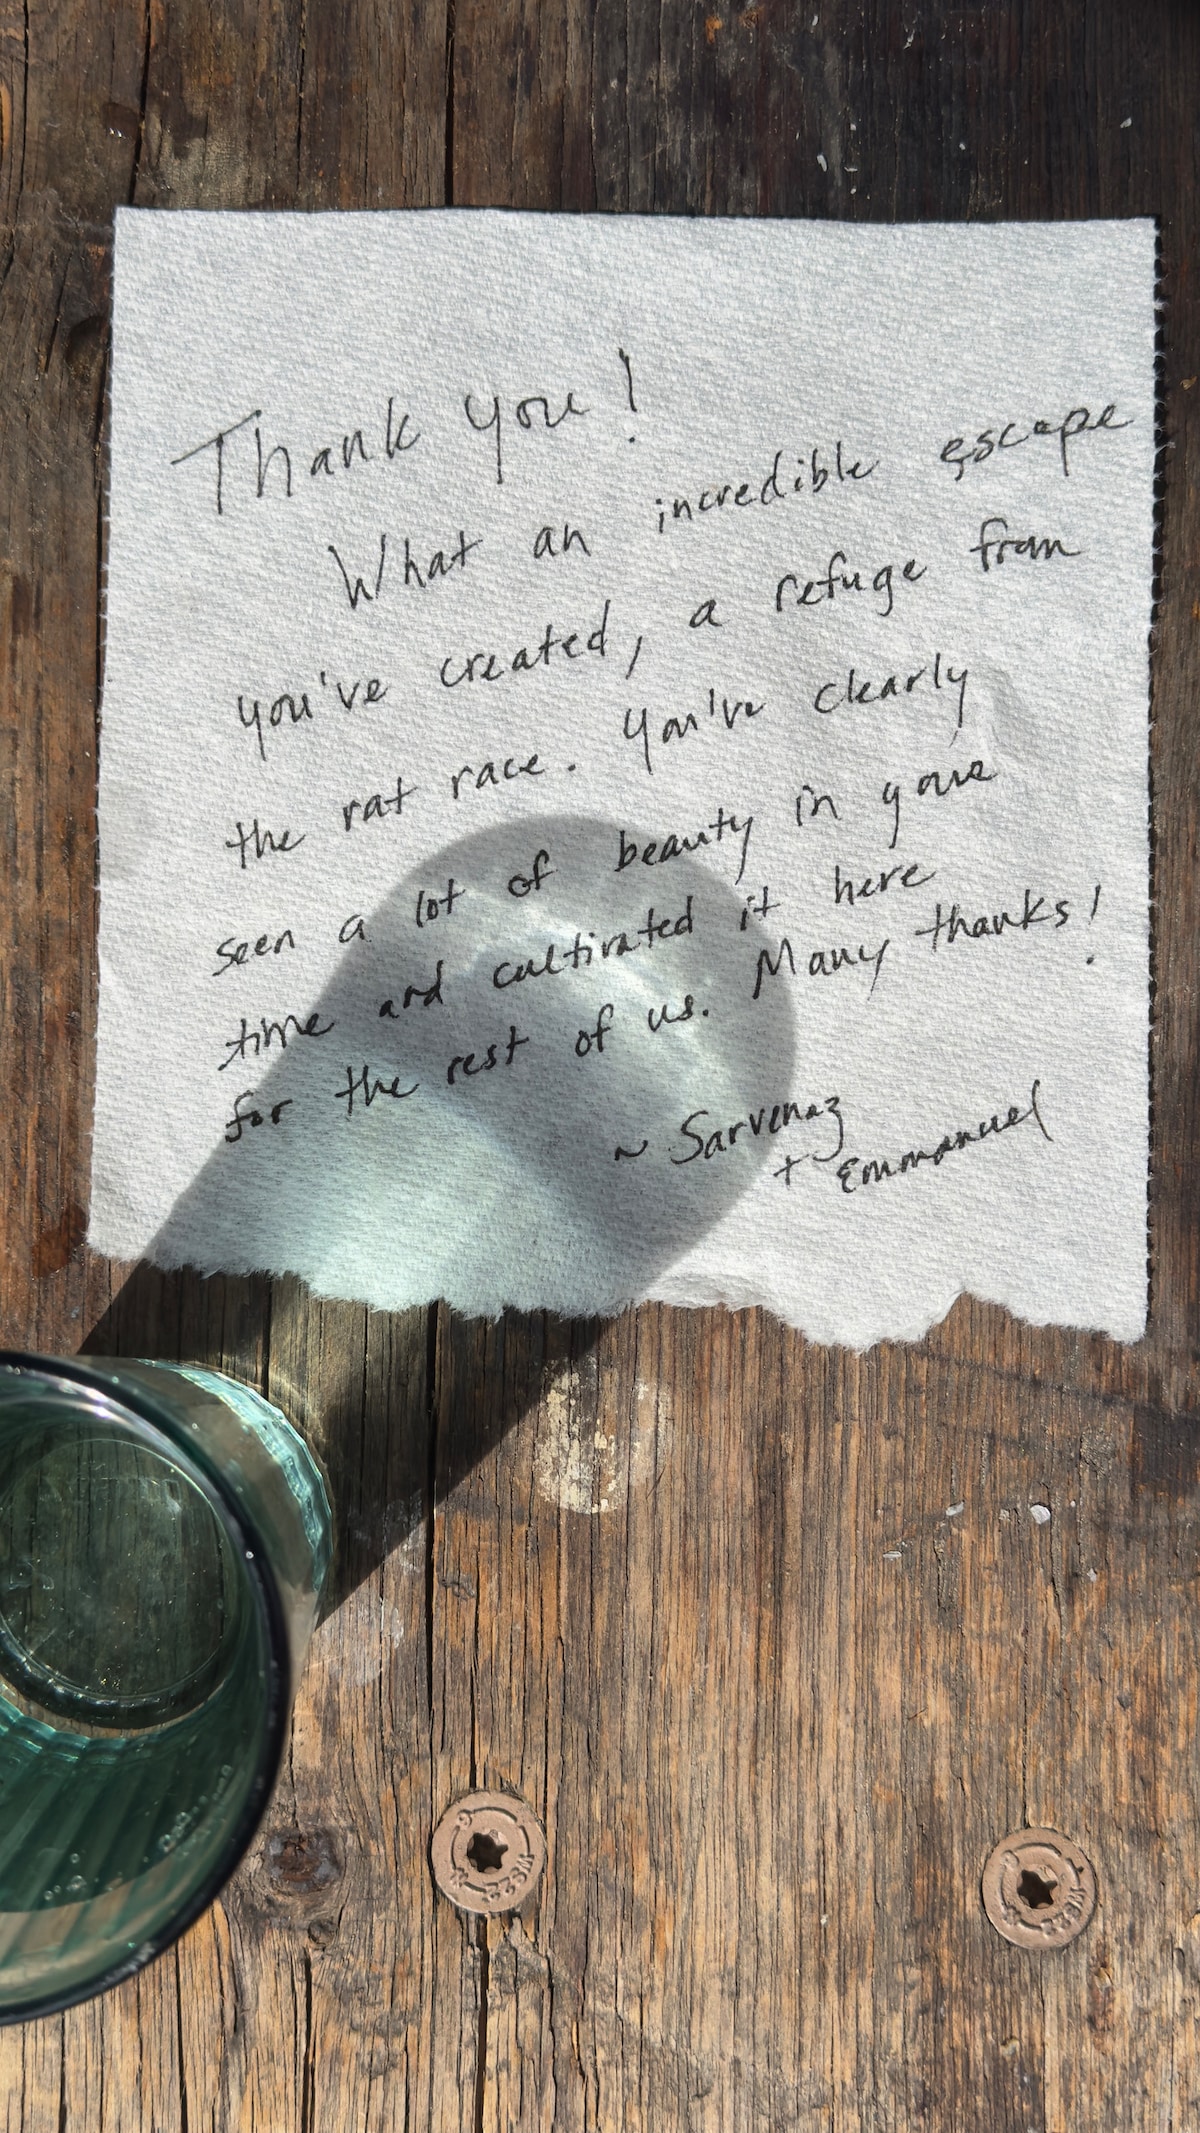 Thank you!
What an incredible escape
you've created, a refuge from
the rat race. You've clearly
seen a lot of beauty in your
time and cultivated it here
for the rest of us. Many thanks!
~ Sarvenaz
+ Emmanuel